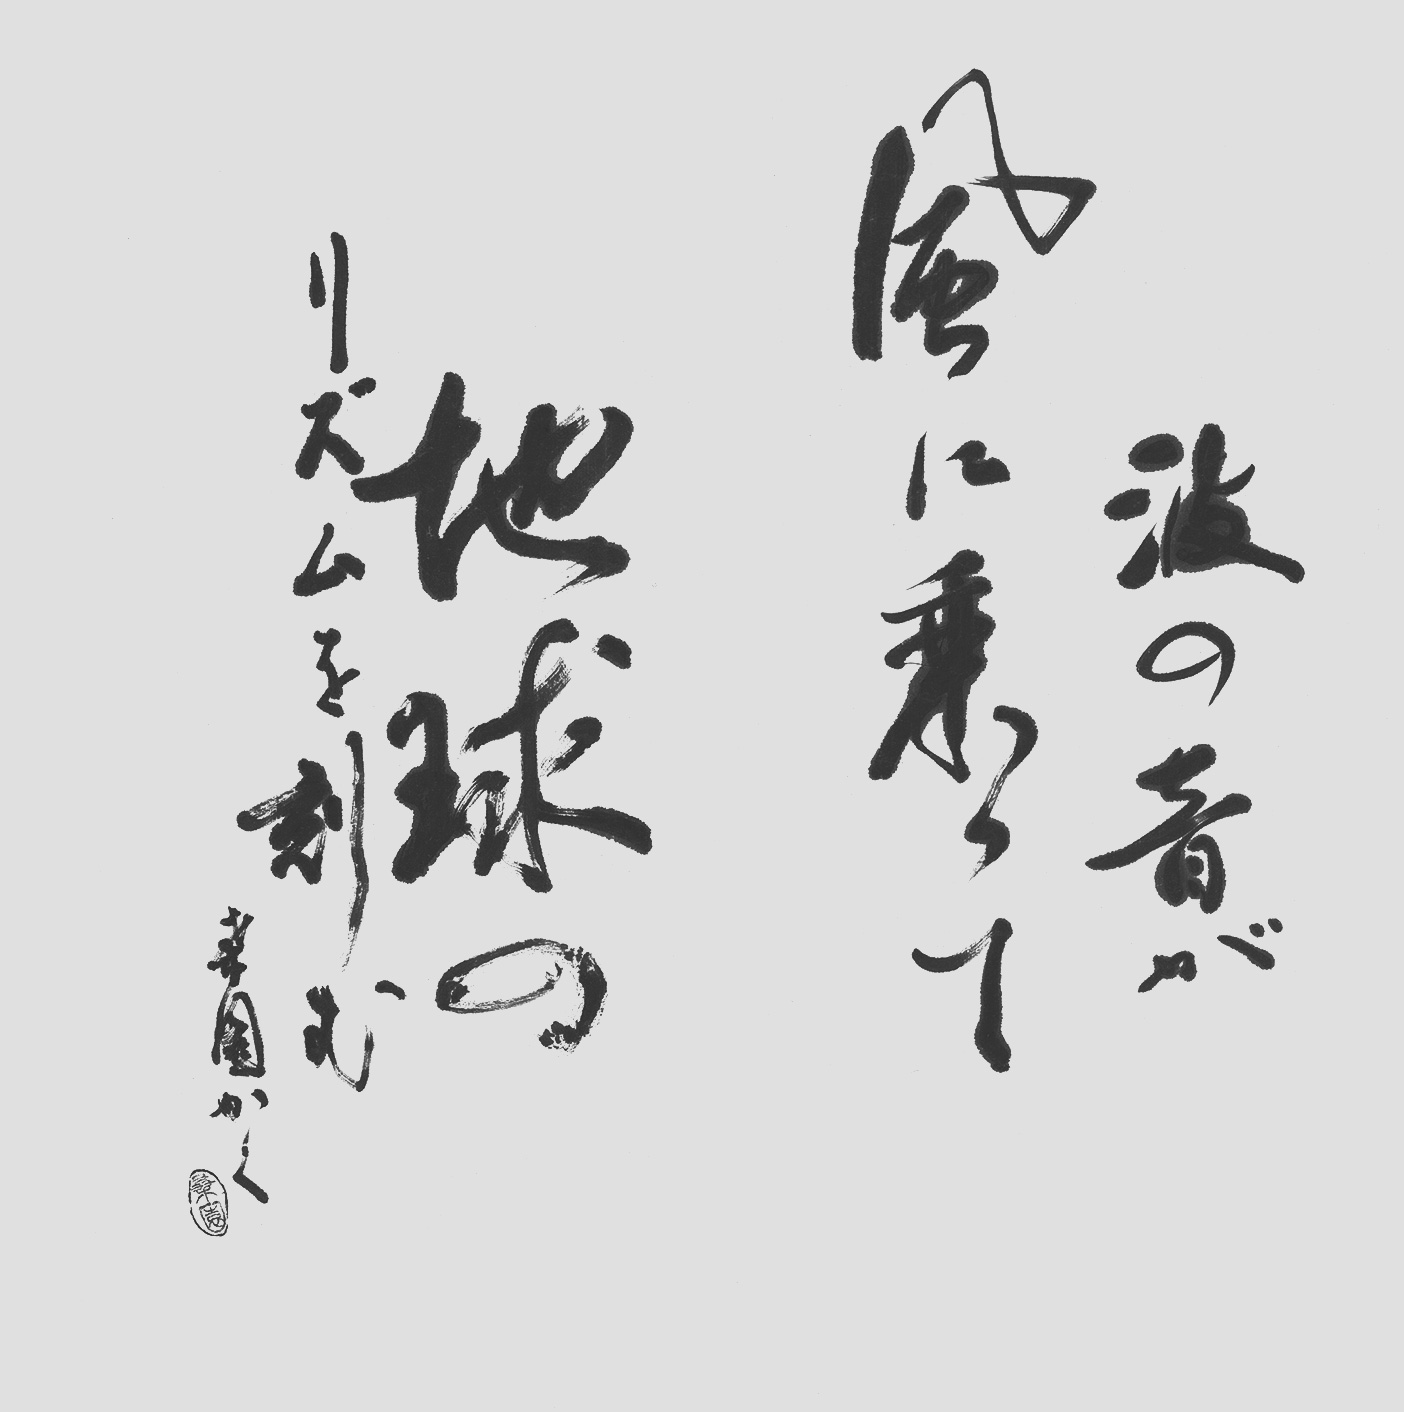 波の音が
風に乗って
地球の
リズムを刻む
幸園かく